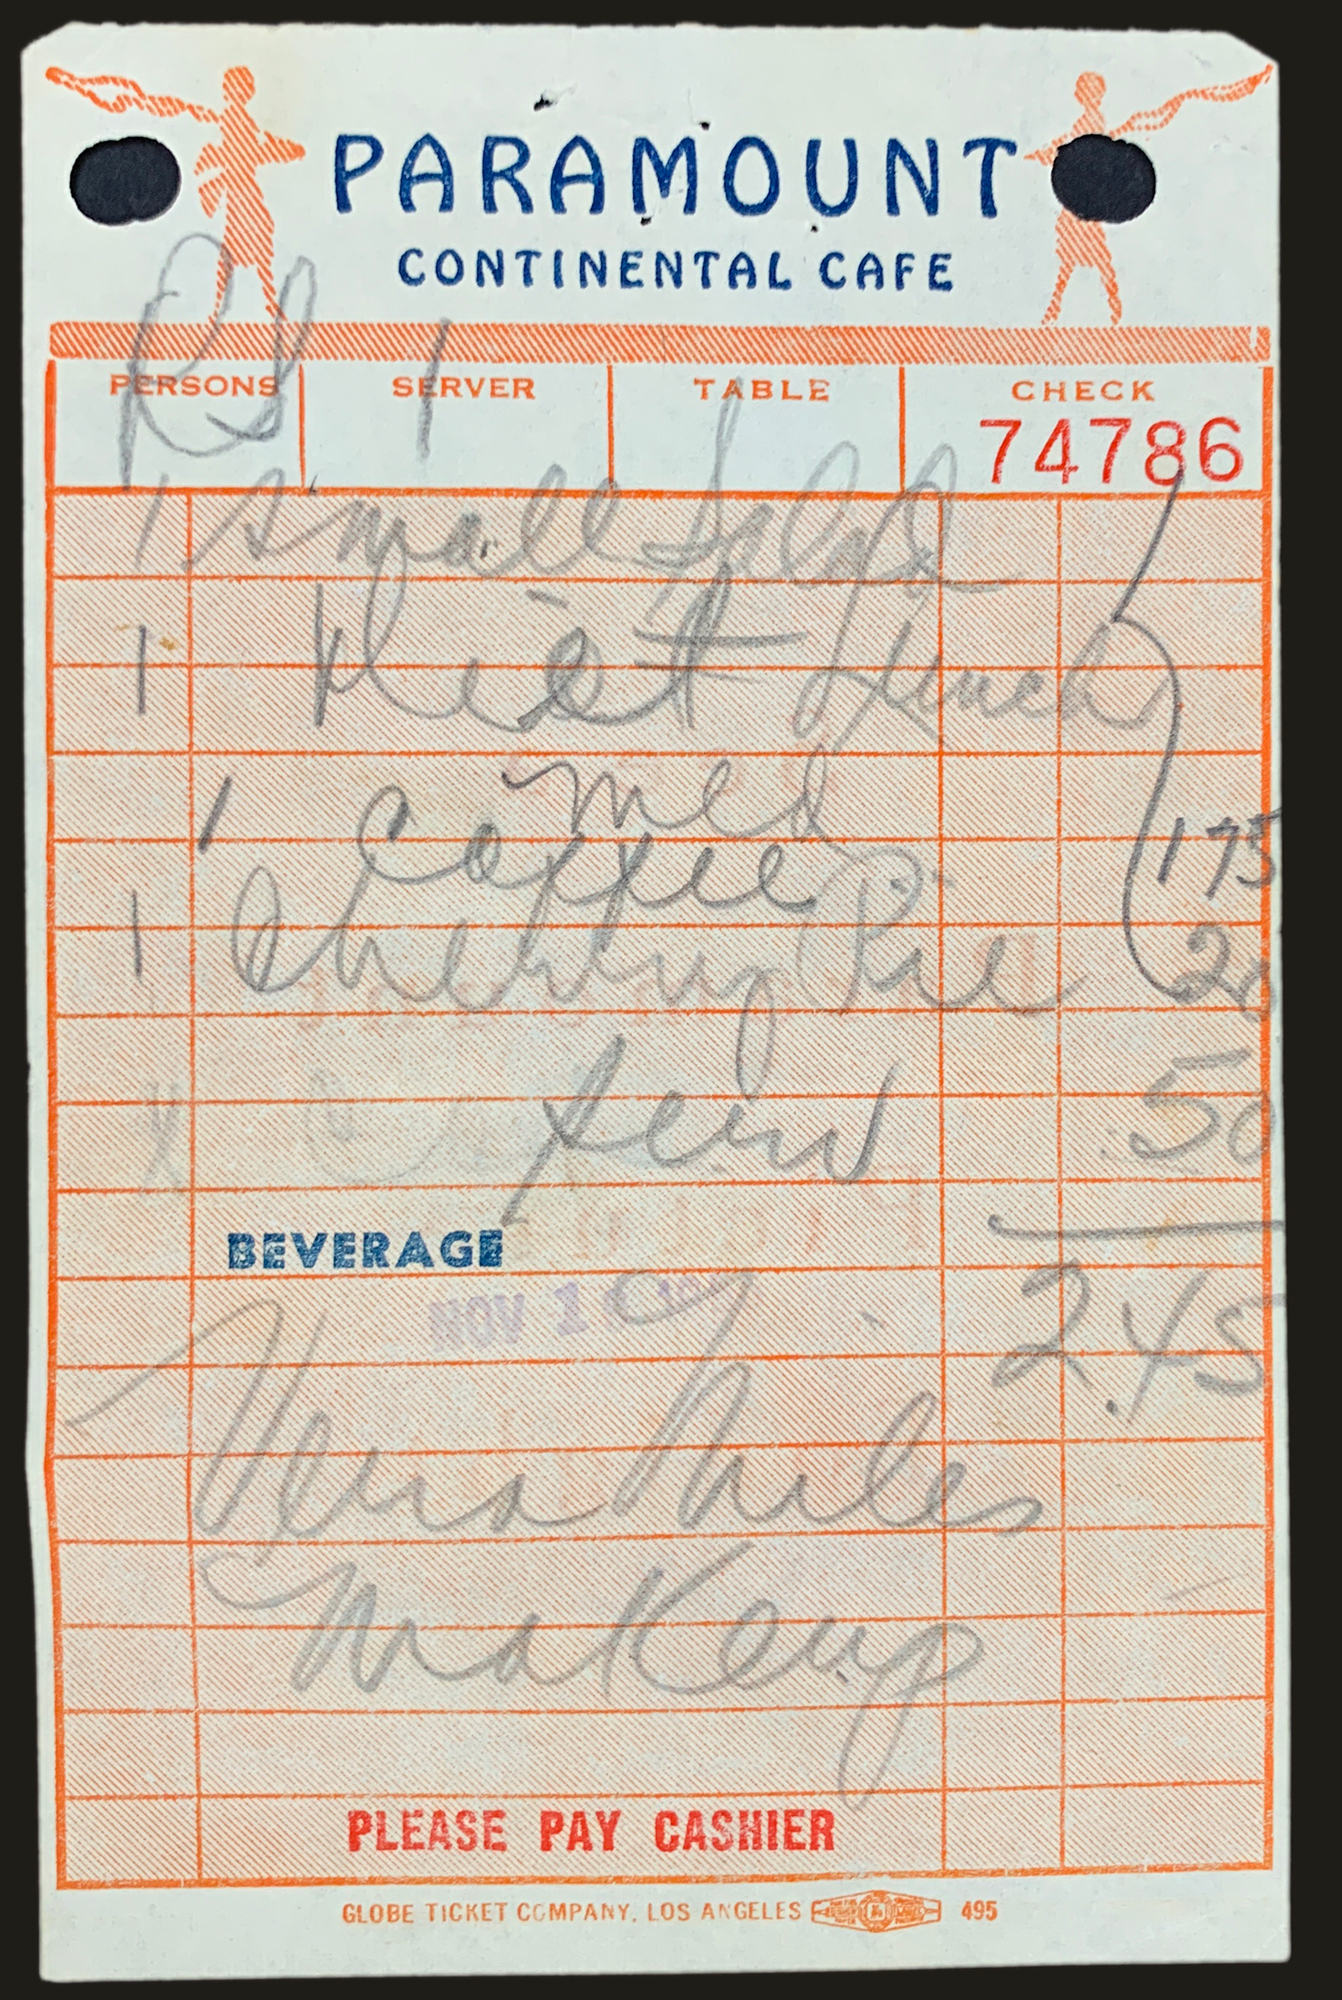 PARAMOUNT
CONTINENTAL CAFE
PERSONS SERVER TABLE CHECK
RS 1
74786
1 small Salad
1 Diet Lunch
1 med
coffee 175
1 Cherry Pie 20
Serv 50
BEVERAGE
NOV 1
2.45
Vera Miles
Makeup
PLEASE PAY CASHIER
GLOBE TICKET COMPANY, LOS ANGELES 495